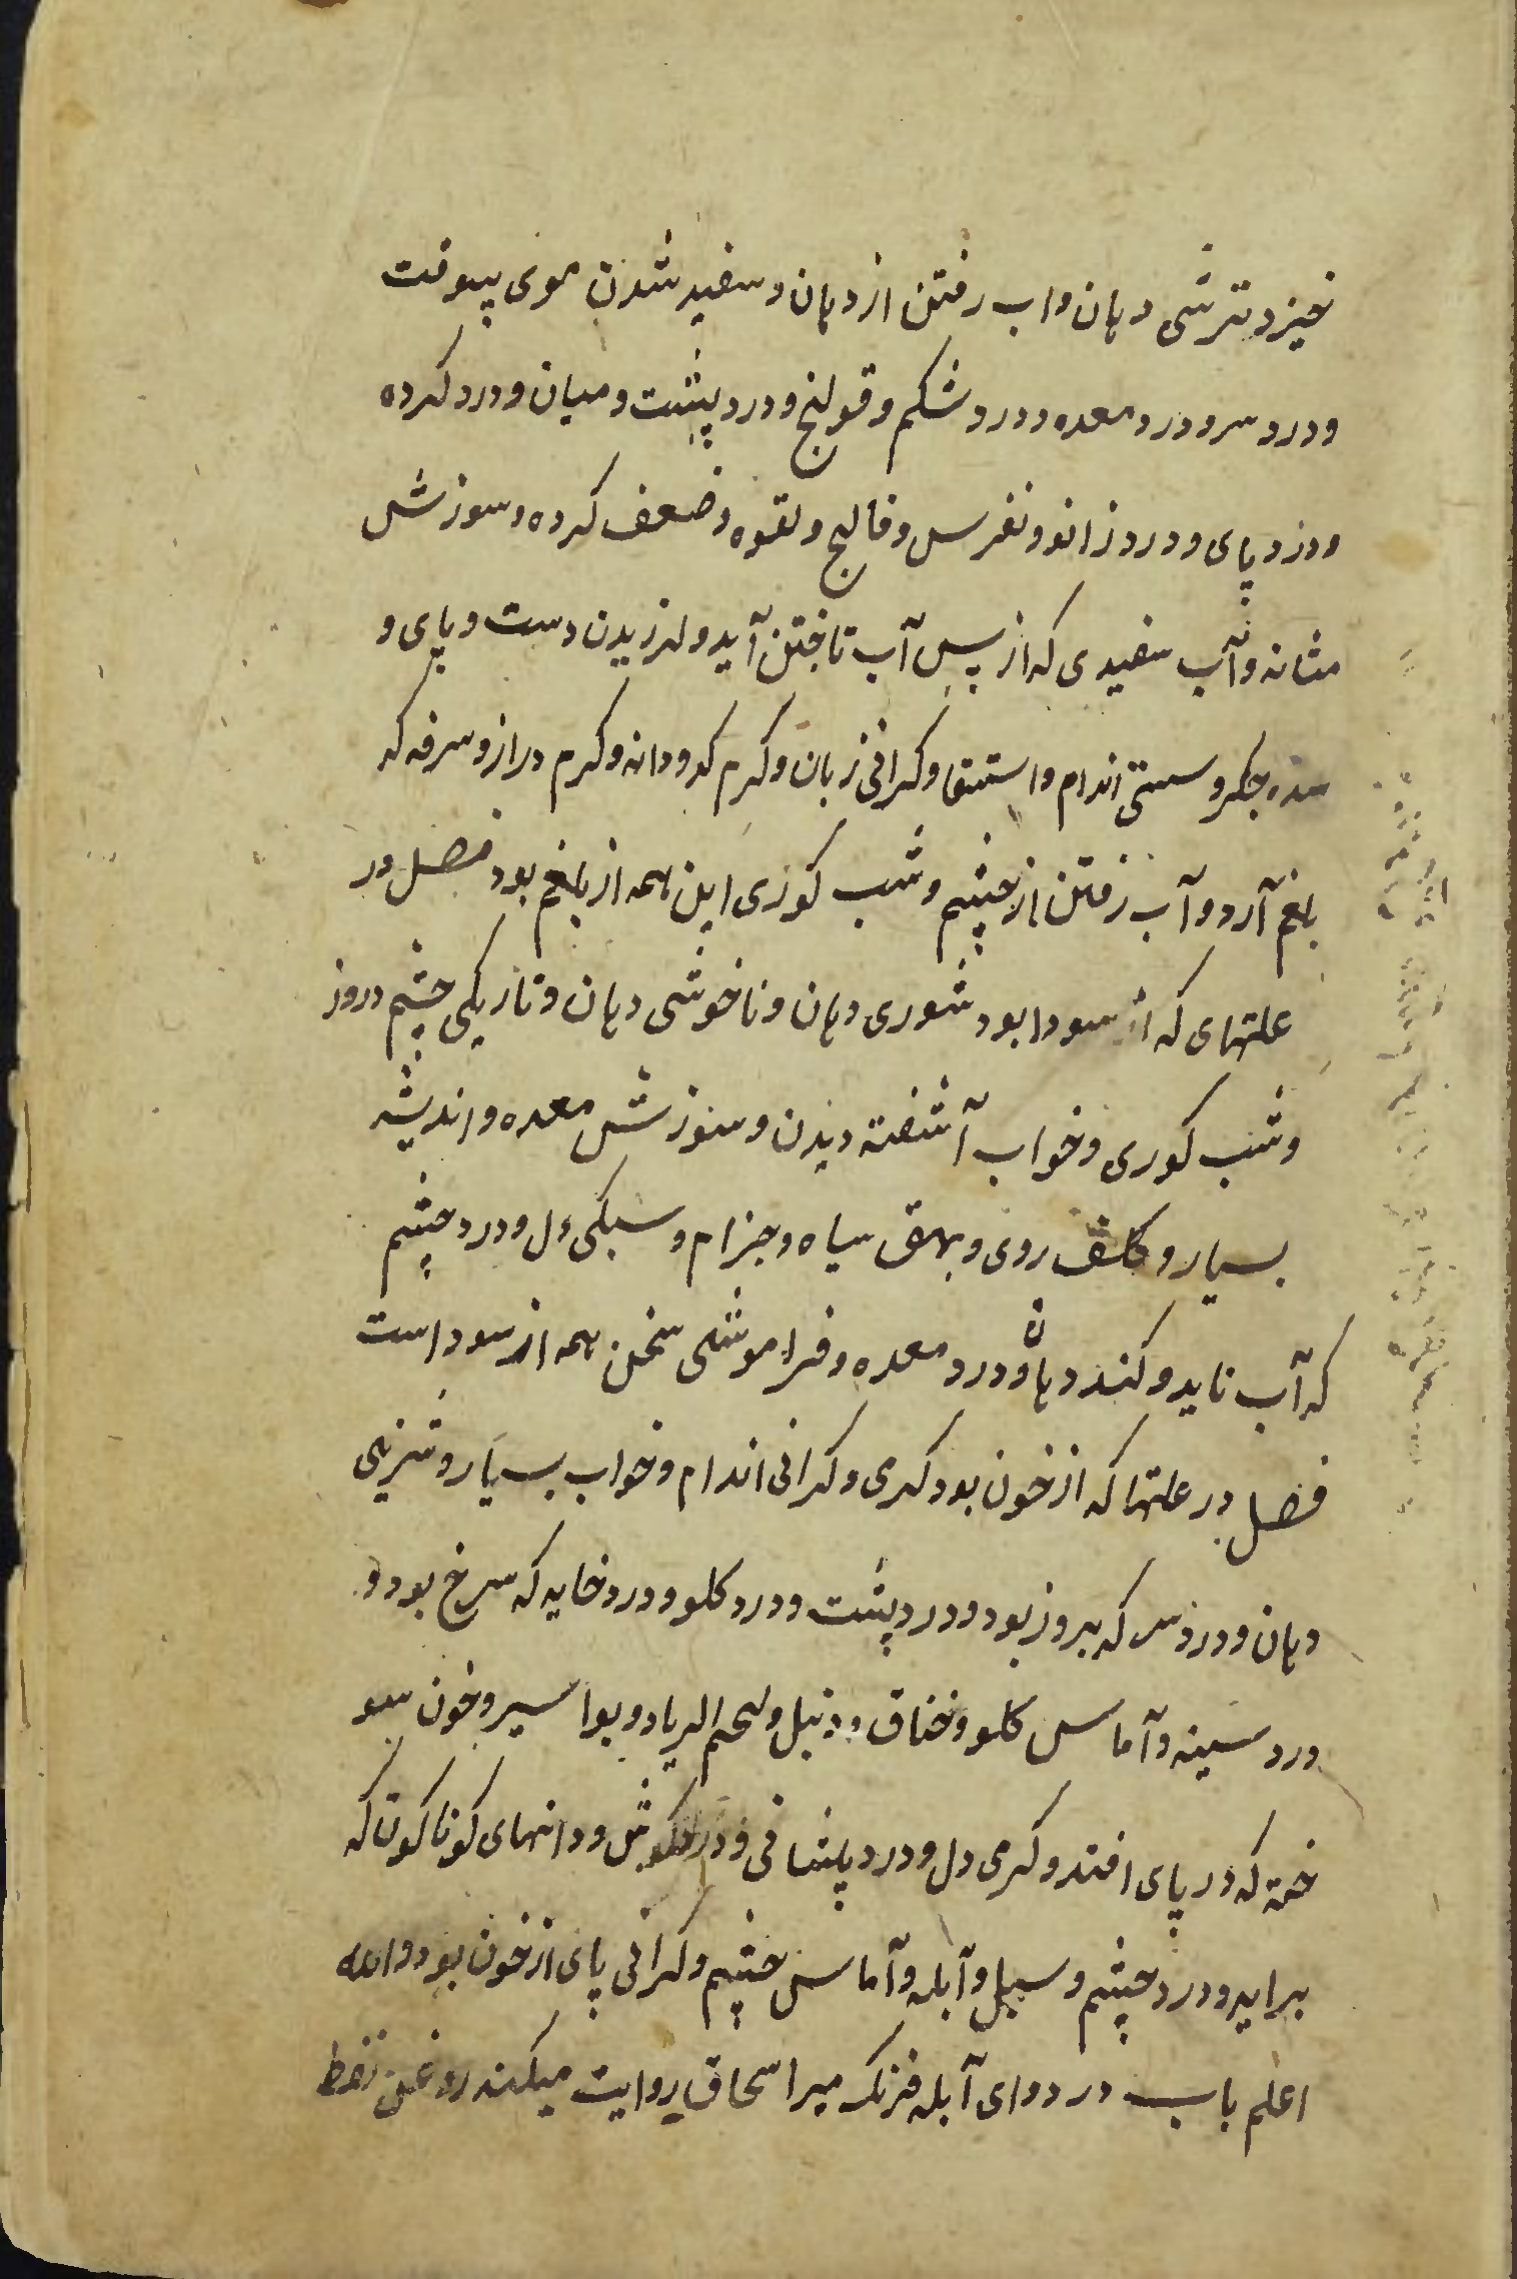 خیزد و ترشی دهان و اب رفتن از دهان و سفید شدن موی بیوقت
و درد سر و درد معده و درد شکم و قولنج و درد پشت و میان و درد کرده
و درد پای و درد زانو و نقرس و فالج و لقوه و ضعف کرده و سوزش
مثانه و آب سفیدی که از پس آب تاختن آید و لرزیدن دست و پای و
سده جکر و سستی اندام و استسقا و کرانی زبان و کرم کدو دانه و کرم دراز و سرفه که
بلغم آرد و آب رفتن از چشم و شب کوری این همه از بلغم بود فصل در
علتهای که از سودا بود شوری دهان و ناخوشی دهان و تاریکی چشم در روز
و شب کوری و خواب آشفته دیدن و سوزش معده و اندیشه
بسیار و کلف روی و بهق سیاه و جزام و سبکی دل و درد چشم
که آب ناید و کند دهان و درد معده و فراموشی سخن همه از سودا است
فصل در علتها که از خون بود کرمی و کرانی اندام و خواب بسیار و شیرینی
دهان و درد سر که بروز بود و درد پشت و درد کلو و درد خایه که سرخ بود و
درد سینه و آماس کلو و خناق و دنبل و لحم الریاد و بواسیر و خون سو
خته که در پای افتد و کرمی دل و درد پیشانی و درد کوش و دانهای کوناکون که
براید و درد چشم و سبل و آبله و آماس چشم و کرانی پای از خون بود والله
اعلم باب در دوای آبله فرنک میر اسحاق روایت میکند روغن نفط